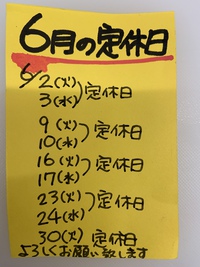 6月の定休日
6/2(火)
3(水) 定休日
9(火)
10(水) 定休日
16(火)
17(水) 定休日
23(火)
24(水) 定休日
30(火) 定休日
よろしくお願い致します